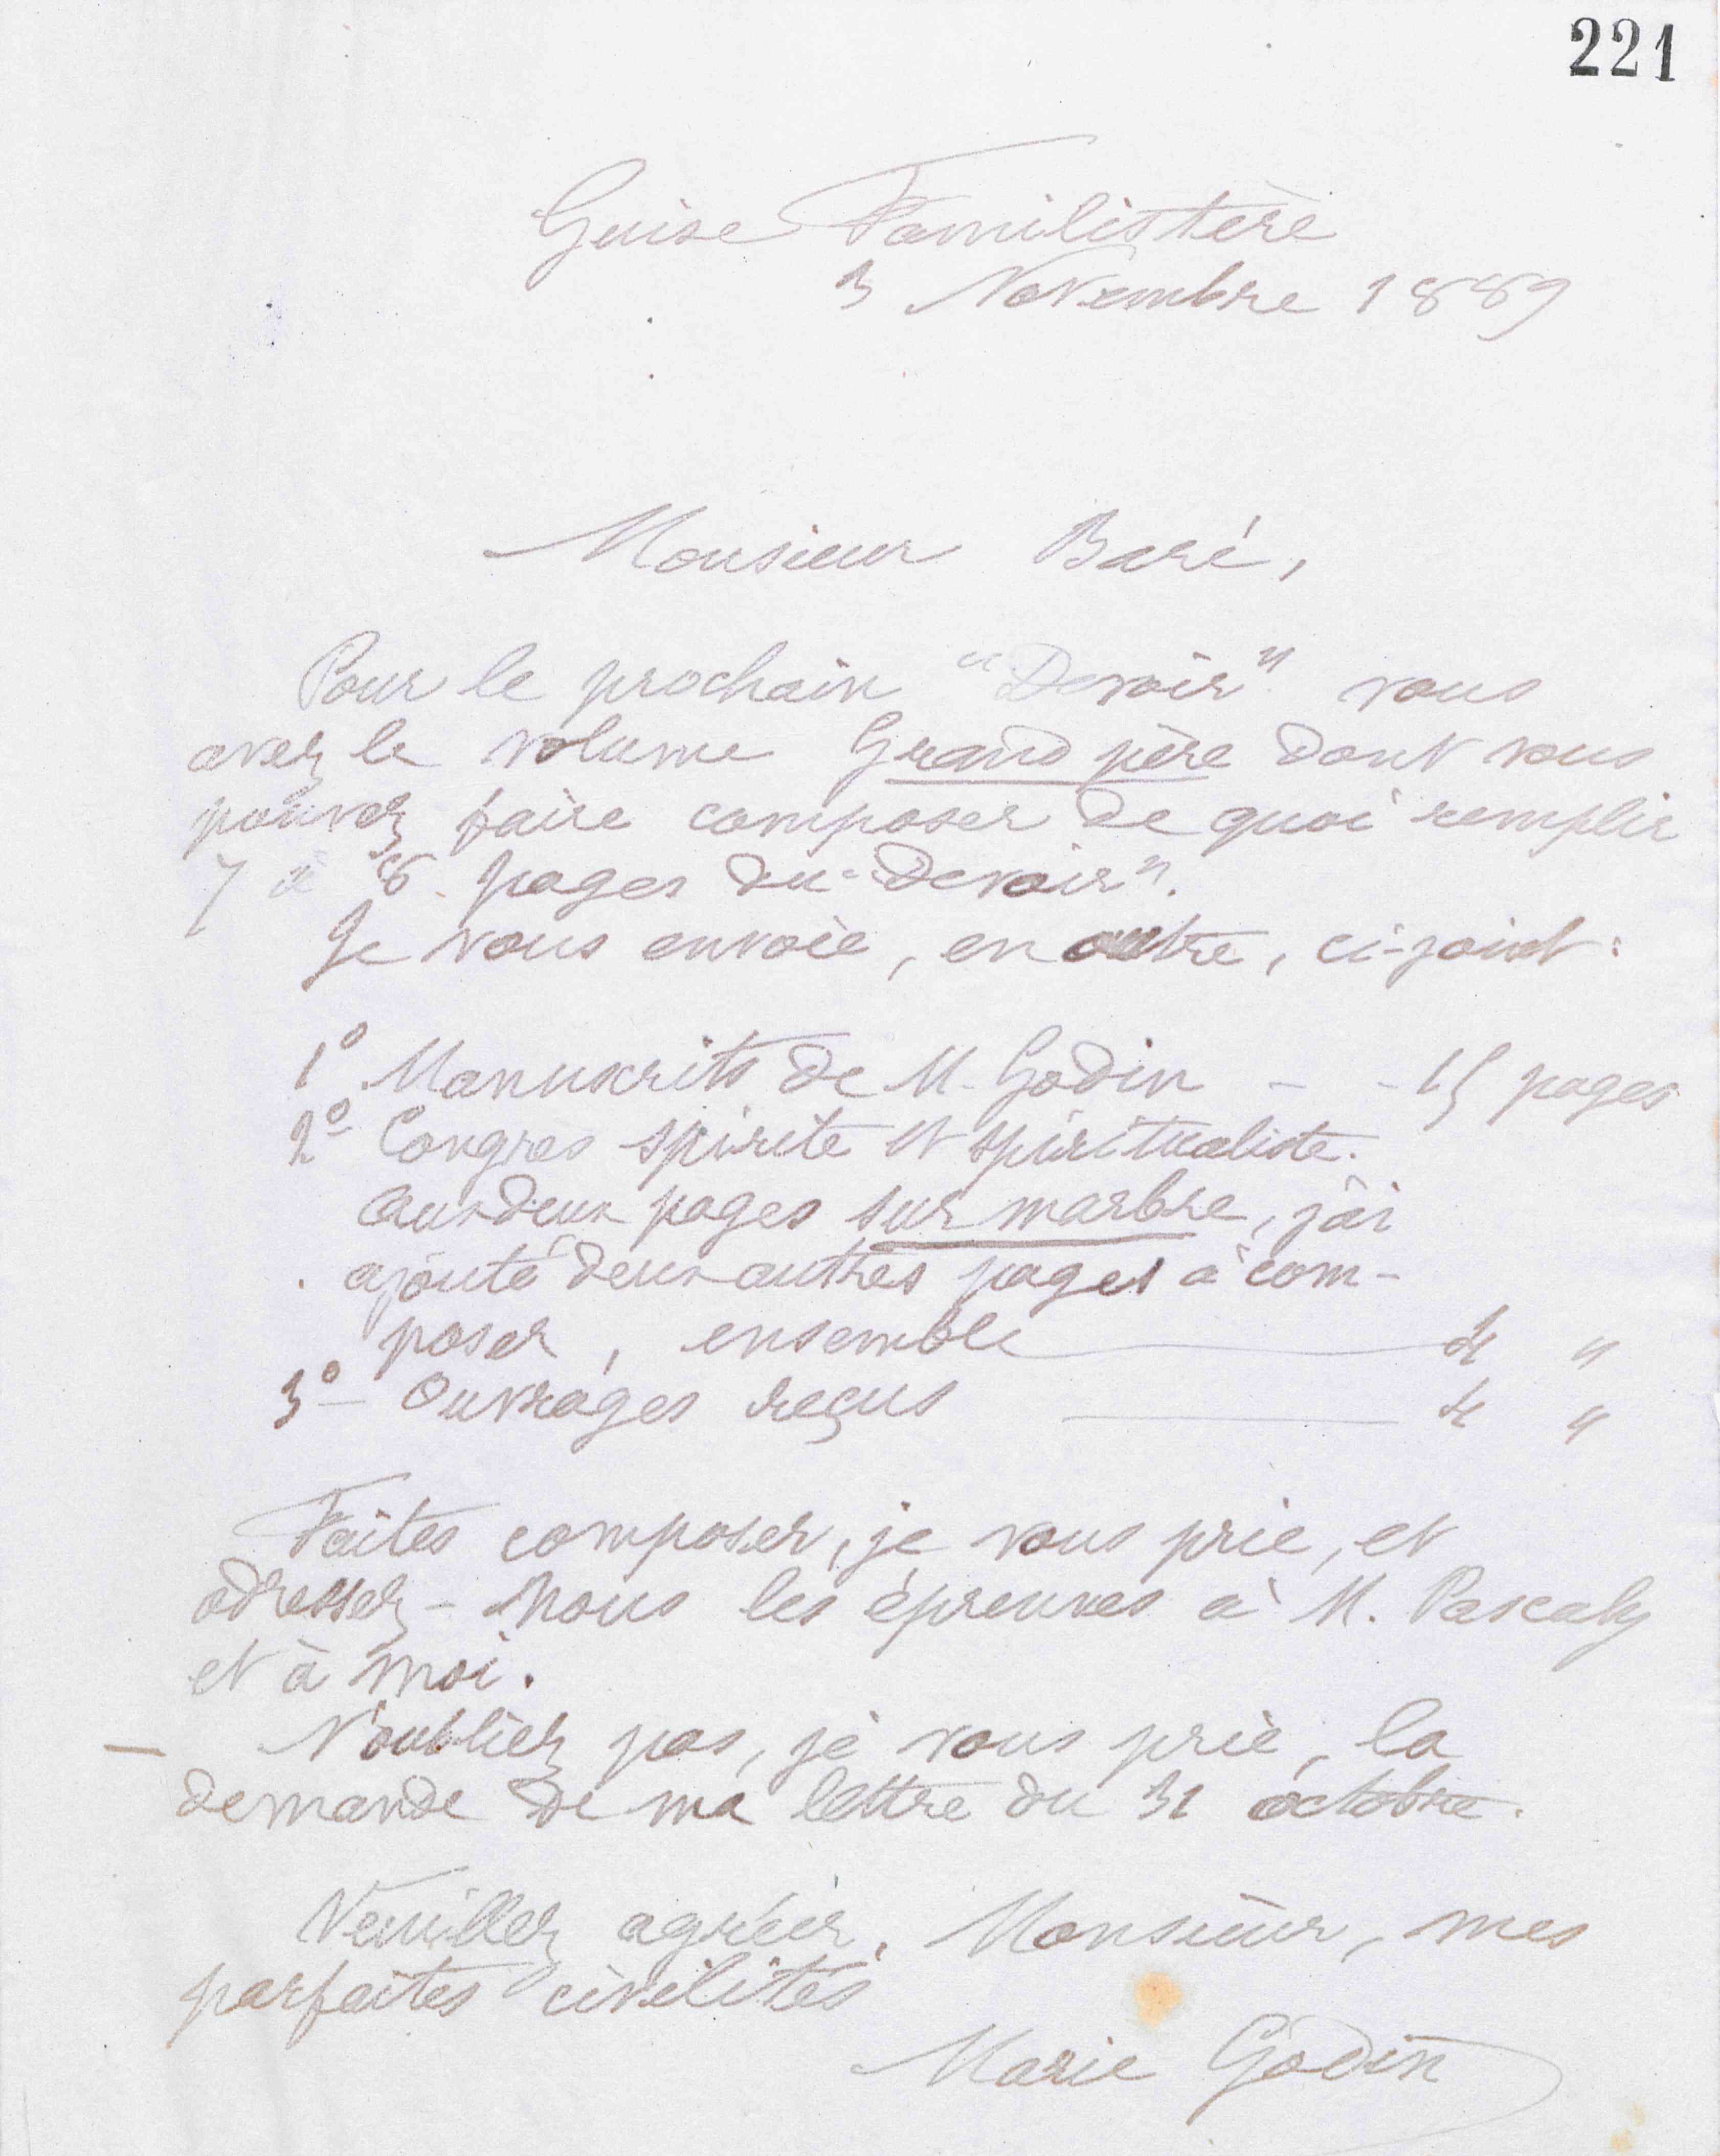 221
Guise Familistère
3 Novembre 1889
Monsieur Baré,
Pour le prochain "Devoir" vous
avez le volume Grand père dont vous
pouvez faire composer de quoi remplir
7 à 8 pages du "Devoir".
Je vous envoie, en outre, ci-joint :
1º Manuscrits de M. Godin - - 15 pages
2º Congres spirite et spiritualiste.
Aux deux pages sur marbre, j'ai
ajouté deux autres pages à com-
poser, ensemble 4 "
3º - Ouvrages reçus 4 "
Faites composer, je vous prie, et
adressez-nous les épreuves à M. Pascaly
et à moi.
— N'oubliez pas, je vous prie, la
demande de ma lettre du 31 octobre.
Veuillez agréer, Monsieur, mes
parfaites civilités
Marie Godin